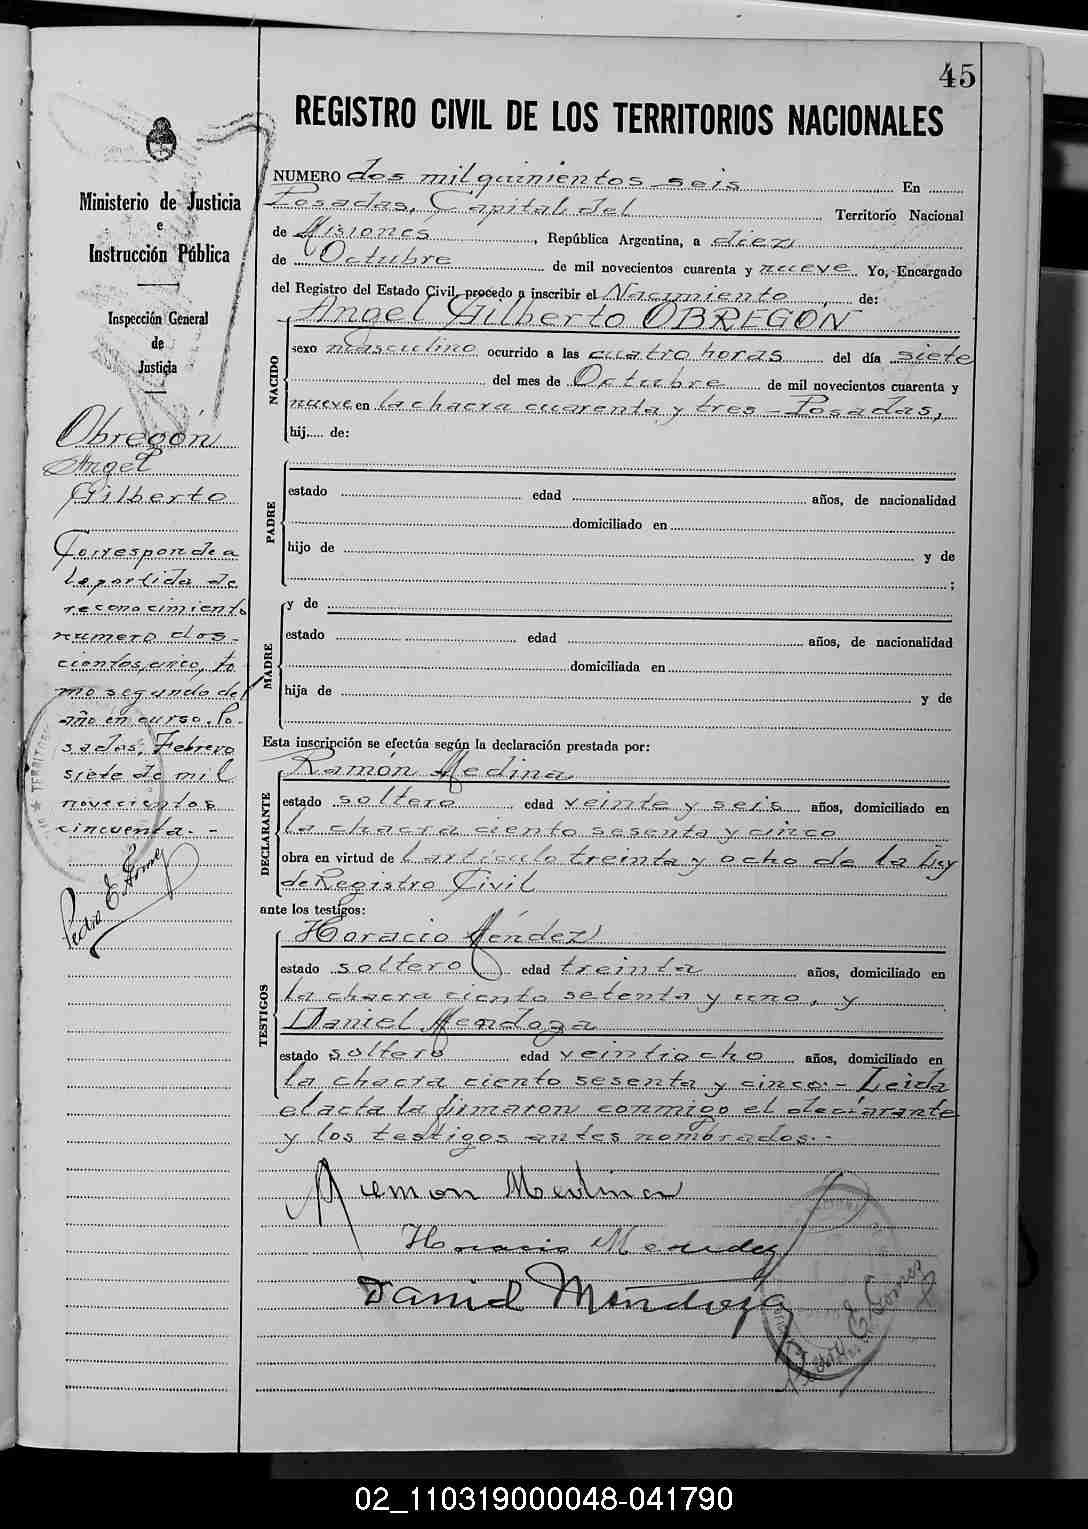 45
REGISTRO CIVIL DE LOS TERRITORIOS NACIONALES
Ministerio de Justicia
e
Instrucción Pública
Inspección General
de
Justicia
Obregón
Angel
Gilberto
Corresponde a
la partida de
reconocimiento
número dos-
cientos cinco, to
mo segundo del
año en curso. Po-
sadas, Febrero
siete de mil
novecientos
cincuenta.-
NUMERO dos mil quinientos seis En
Posadas, Capital del Territorio Nacional
de Misiones, República Argentina, a diez
de Octubre de mil novecientos cuarenta y nueve Yo, Encargado
del Registro del Estado Civil, procedo a inscribir el Nacimiento de:
NACIDO
Angel Gilberto OBREGON
sexo masculino ocurrido a las cuatro horas del día siete
del mes de Octubre de mil novecientos cuarenta y
nueve en la chacra cuarenta y tres - Posadas,
hij.... de:
PADRE
estado edad años, de nacionalidad
domiciliado en
hijo de y de
;
MADRE
y de
estado edad años, de nacionalidad
domiciliada en
hija de y de
Esta inscripción se efectúa según la declaración prestada por:
DECLARANTE
Ramón Medina
estado soltero edad veinte y seis años, domiciliado en
la chacra ciento sesenta y cinco
obra en virtud de l artículo treinta y ocho de la Ley
de Registro Civil
ante los testigos:
TESTIGOS
Horacio Méndez
estado soltero edad treinta años, domiciliado en
la chacra ciento setenta y uno, y
Daniel Mendoza
estado soltero edad veintiocho años, domiciliado en
la chacra ciento sesenta y cinco.- Leida
el acta la firmaron conmigo el declarante
y los testigos antes nombrados.-
Ramon Medina
Horacio Mendez
Daniel Mendoza
02_110319000048-041790